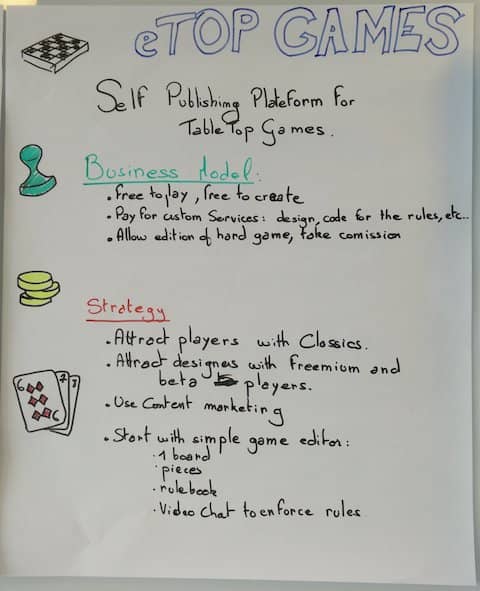 eTOP GAMES
Self Publishing Plateform For
TableTop Games.
Business Model:
• Free to play, free to create
• Pay for custom Services: design, code for the rules, etc...
• Allow edition of hard game, take comission
Strategy
• Attract players with Classics.
• Attract designers with freemium and
beta players.
• Use Content marketing
• Start with simple game editor:
• 1 board
• pieces
• rulebook
• Video Chat to enforce rules
6
7